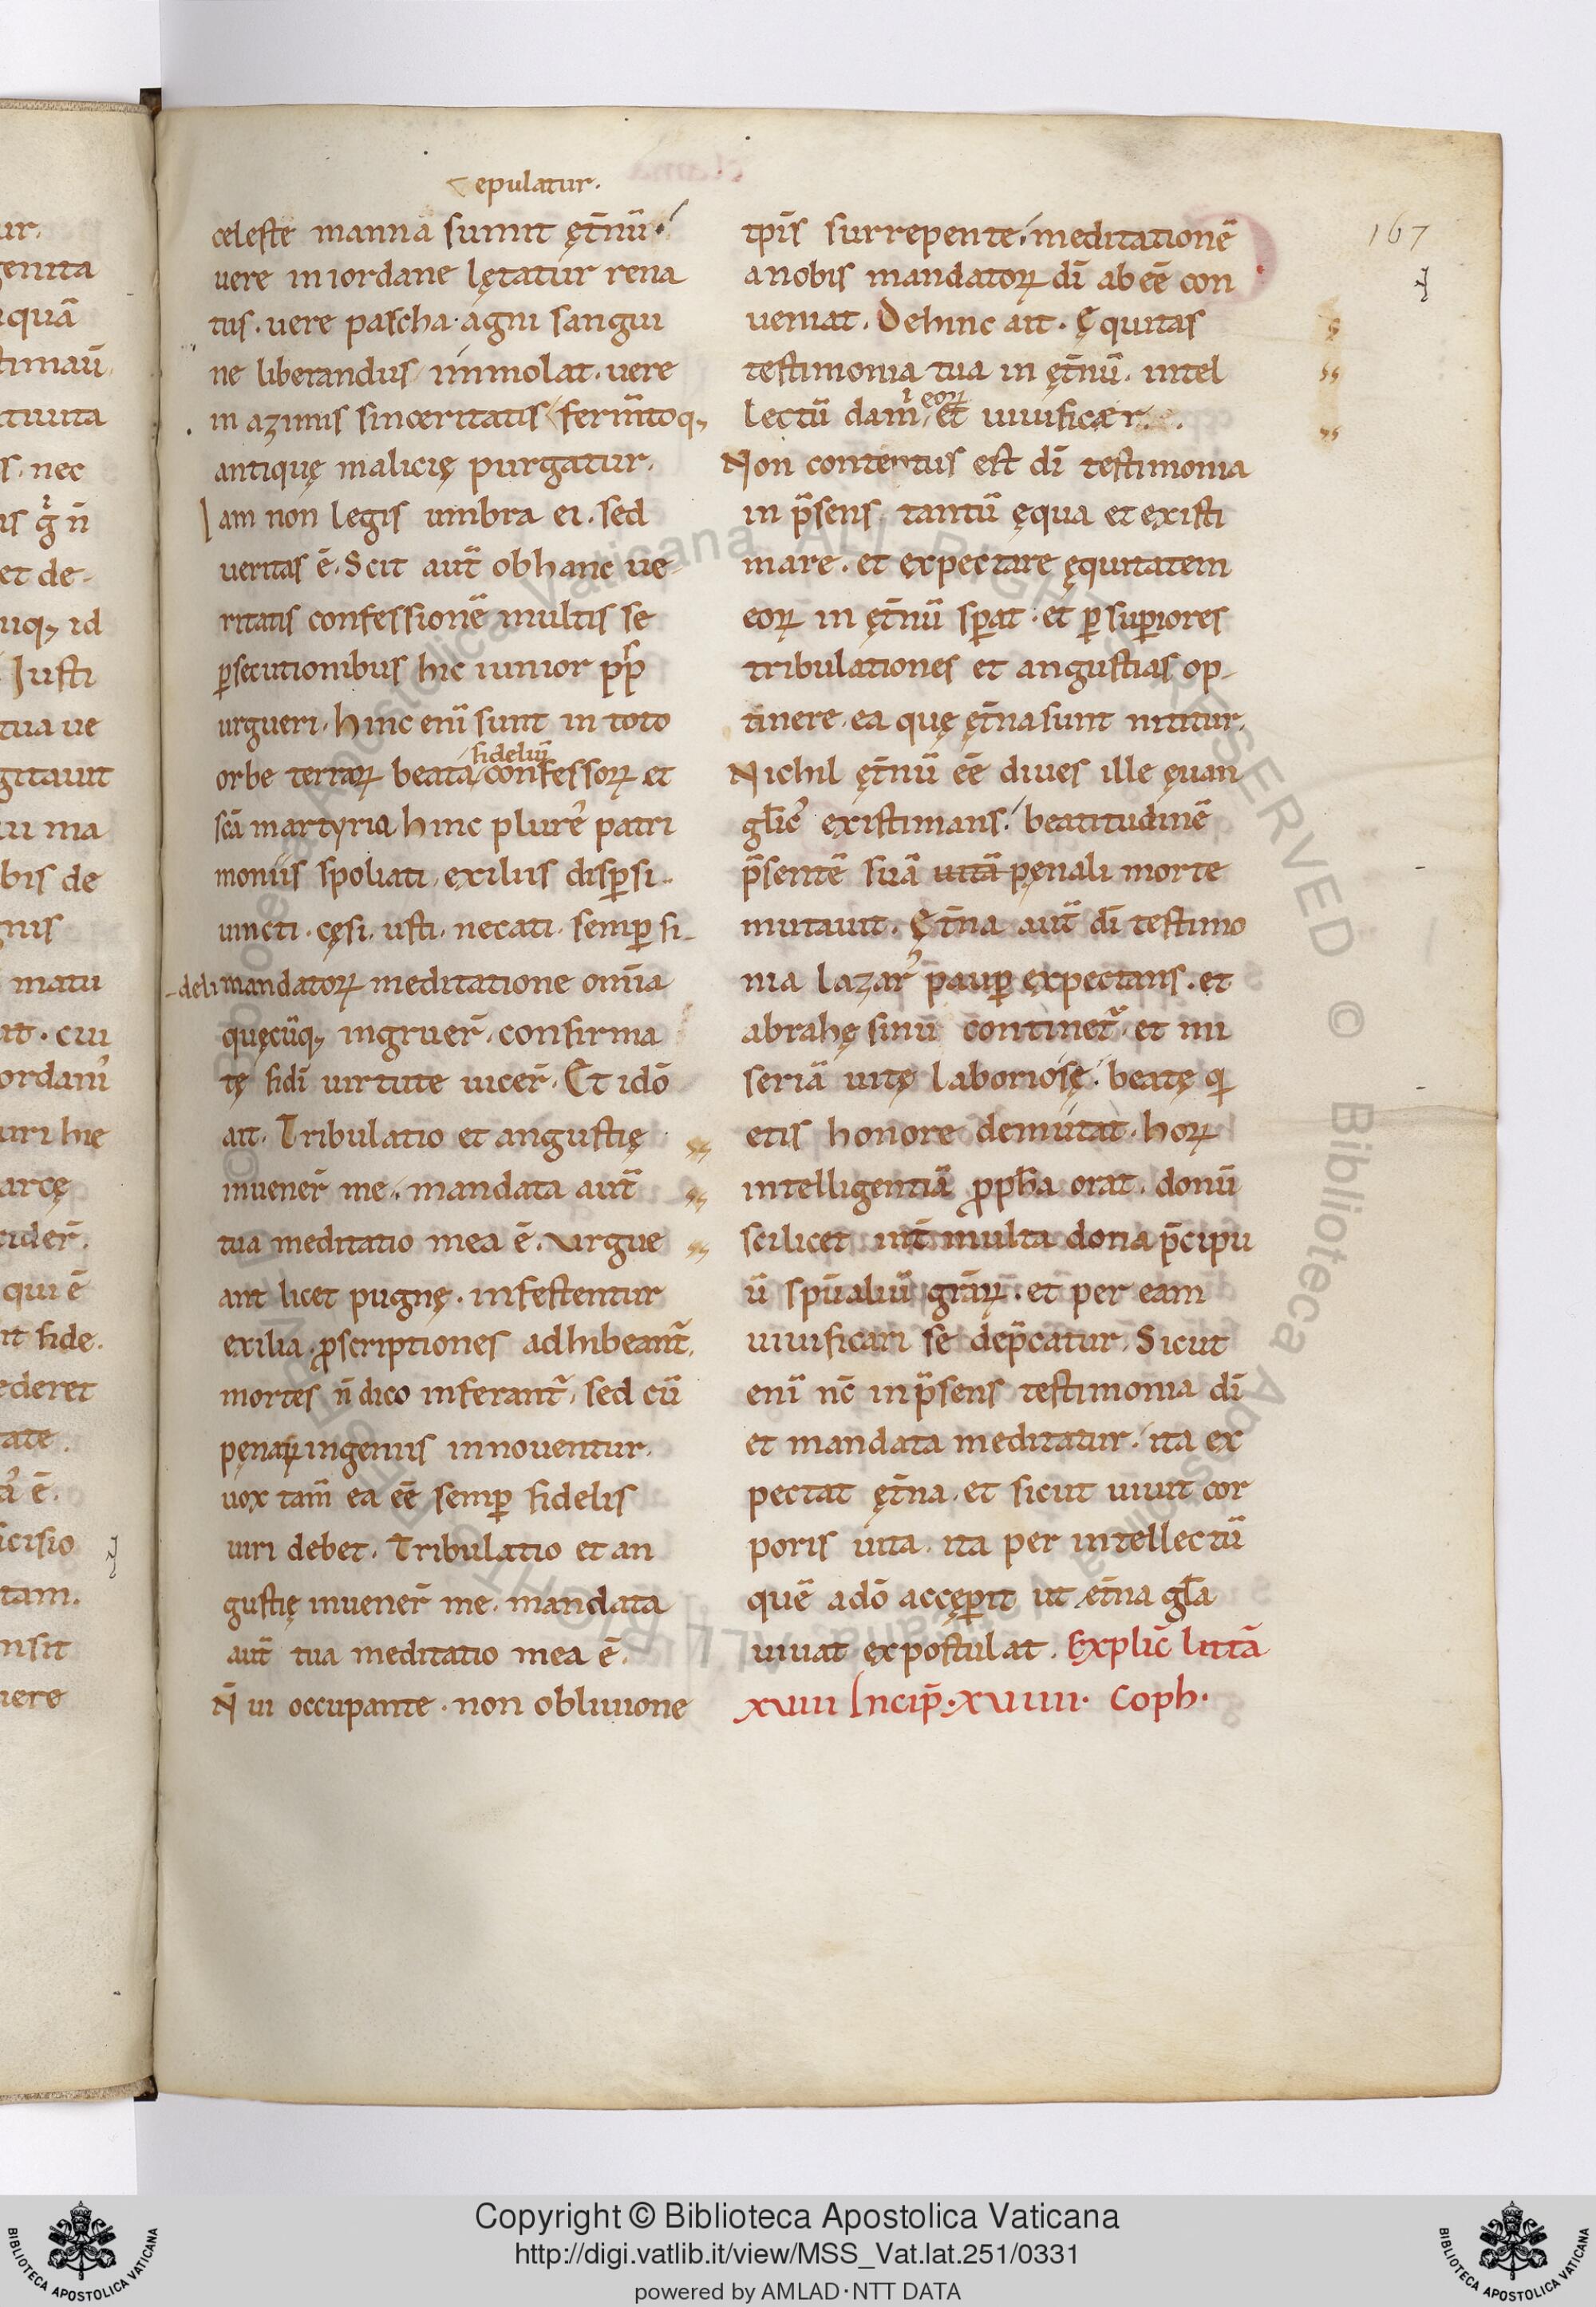 epulatur.
celeste manna sumit ęt̄nū·
uere in iordane lętatur rena
tus. uere pascha agni sangui
ne liberandus immolat. uere
in azimis sinceritatis ferm̄toq;
antiquę malicię purgatur.
Iam non legis umbra ei. sed
ueritas ē. Scit aut̄ ob hanc ue-
ritatis confessionē multis se
ꝑsecutionibus hic iunior pp̄
urgueri. hinc enī sunt in toto
fidelīu
orbe terraꝝ beata confessoꝝ et
sc̄a martyria. hinc plurē patri
moniis spoliati. exiliis disꝑsi.
uincti. cęsi. usti. necati. semꝑ fi-
-deli mandatoꝝ meditatione om̄ia
quęcūq; ingruer̄. confirma
tę fidī uirtute uicer̄. Et idō
ait. Tribulatio et angustię
inuener̄ me. mandata aut̄
tua meditatio mea ē. Urgue
ant licet pugnę. infestentur
exilia. ꝓscriptiones adhibeant̄.
mortes n̄ dico inferant̄. sed cū
pęnaꝝ ingeniis innouentur.
uox tam̄ ea eē semꝑ fidelis
uiri debet. Tribulatio et an
gustię inuener̄ me. mandata
aut̄ tua meditatio mea ē.
N̄ ui occupante. non obliuione
tp̄is surrepente. meditationē
a nobis mandatoꝝ dī abeē con
ueniat. Dehinc ait. Ęquitas
testimonia tua in ęt̄nū. intel
eoꝝ
lectū dam̄ et uiuificaer.
Non contentus est dī testimonia
in p̄sens tantū ęqua et existi
mare. et expectare ęquitatem
eoꝝ in ęt̄nū sꝑat. et ꝑ suꝑiores
tribulationes et angustias op-
tinere ea quę ęt̄na sunt nititur.
Nichil ęt̄nū eē diues ille ęuan
gl̄ic' existimans. beatitudinē
p̄sentē suā uitā pęnali morte
mutauit. Ęt̄na aut̄ dī testimo
nia lazar' pauꝑ expectans. et
abrahę sinu continet̄. et mi
seriā uitę laboriosę. beatę qi
etis honore demutat. hoꝝ
intelligentiā ꝓph̄a orat. donū
scilicet int̄ multa dona p̄cipu
ū sp̄ualiū gr̄aꝝ. et per eam
uiuificari se dep̄catur. Sicut
enī nc̄ in p̄sens testimonia dī
et mandata meditatur. ita ex
pectat ęt̄na. et sicut uiuit cor
poris uita. ita per intellectū
quē a dō accęꝑit ut et̄na gl̄a
uiuat expostulat. Explic̄ litt̄a
xviii Incip̄. xviiii. Coph.
167
Copyright © Biblioteca Apostolica Vaticana
http://digi.vatlib.it/view/MSS_Vat.lat.251/0331
powered by AMLAD·NTT DATA
BIBLIOTECA APOSTOLICA VATICANA
BIBLIOTECA APOSTOLICA VATICANA